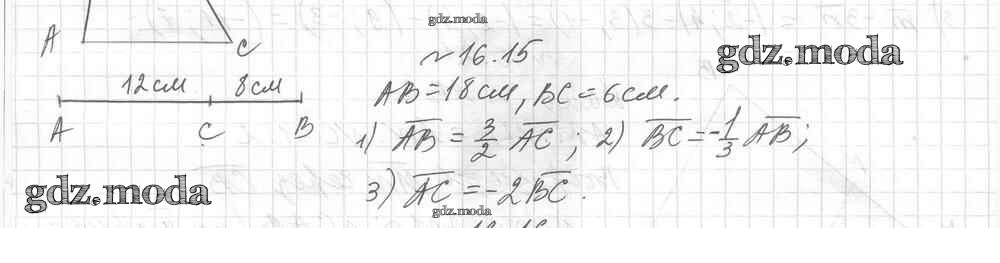 gdz.moda
A C
№ 16.15
gdz.moda
12см 8см
AB = 18см, BC = 6см.
A C B
1) \overline{AB} = \frac{3}{2} \overline{AC}; 2) \overline{BC} = -\frac{1}{3} \overline{AB};
gdz.moda
3) \overline{AC} = -2\overline{BC}.
gdz.moda